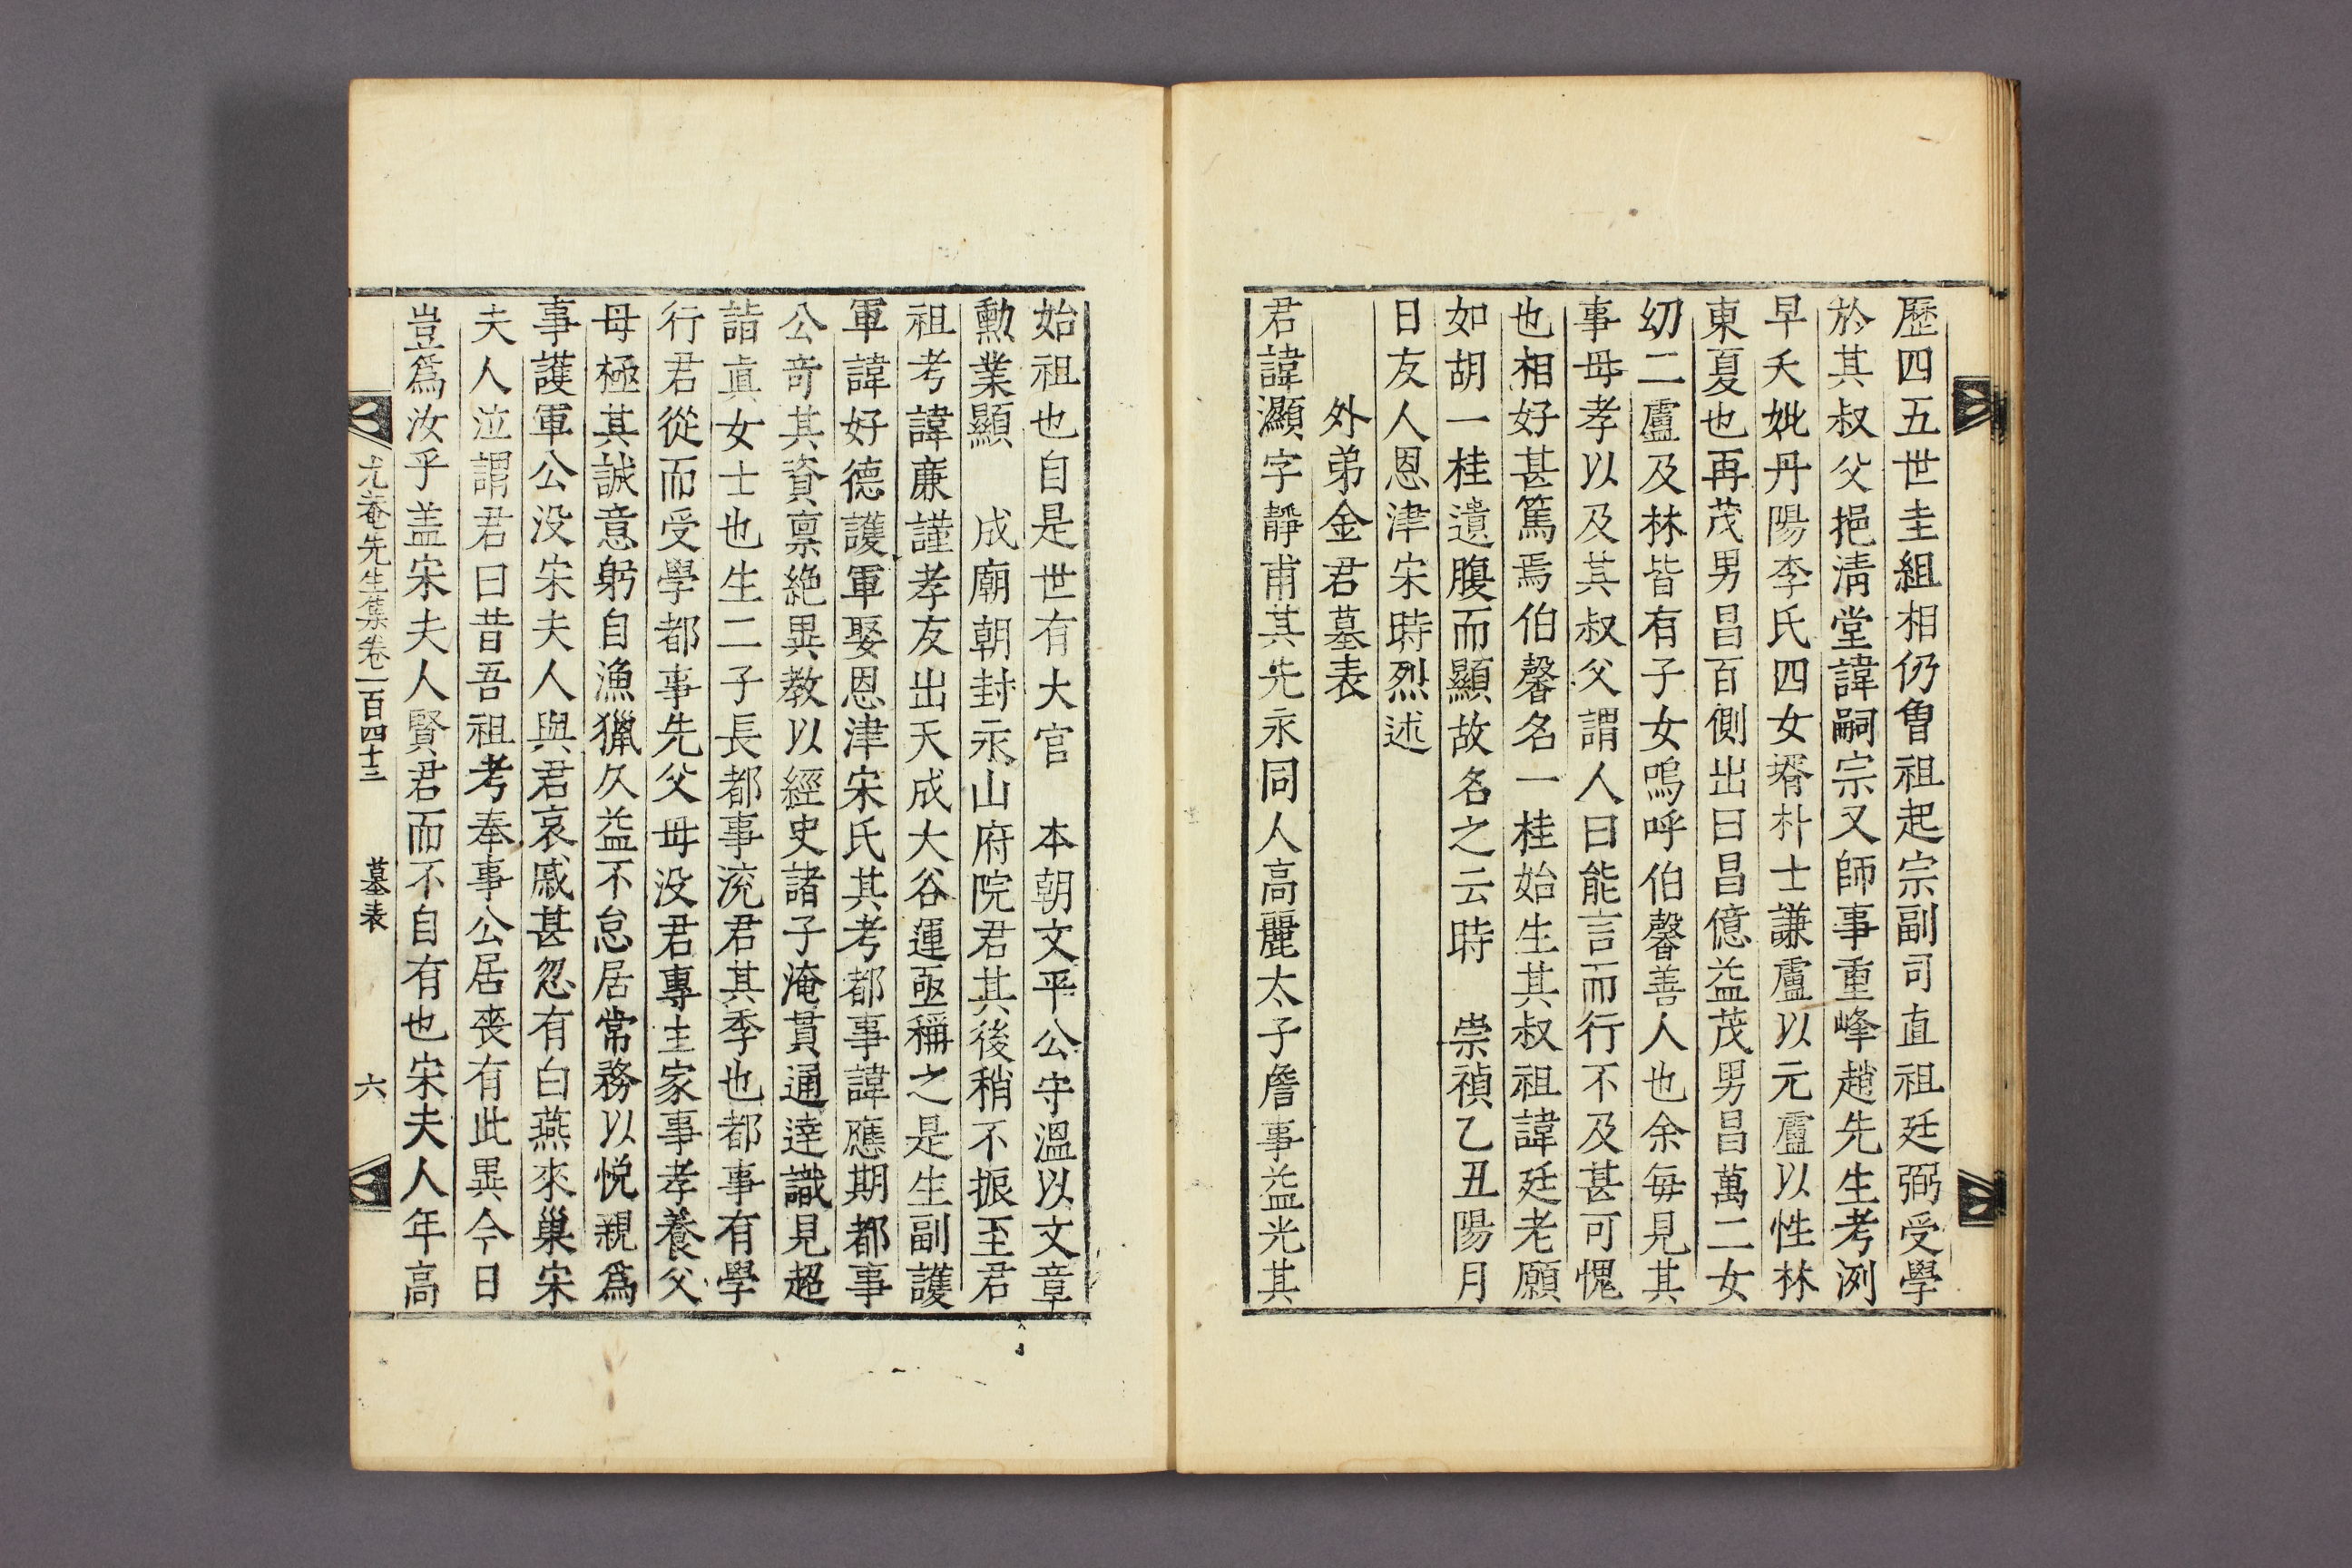 歷四五世圭組相仍曾祖起宗副司直祖廷弼受學
於其叔父挹淸堂諱嗣宗又師事重峰趙先生考洌
早夭妣丹陽李氏四女壻朴士謙盧以元盧以性林
東夏也再茂男昌百側出曰昌億益茂男昌萬二女
幼二盧及林皆有子女嗚呼伯馨善人也余每見其
事母孝以及其叔父謂人曰能言而行不及甚可愧
也相好甚篤焉伯馨名一桂始生其叔祖諱廷老願
如胡一桂遺腹而顯故名之云時　崇禎乙丑陽月
日友人恩津宋時烈述
外弟金君墓表
君諱灦字靜甫其先永同人高麗太子詹事益光其
始祖也自是世有大官　本朝文平公守溫以文章
勳業顯　成廟朝封永山府院君其後稍不振至君
祖考諱廉謹孝友出天成大谷運亟稱之是生副護
軍諱好德護軍娶恩津宋氏其考都事諱應期都事
公奇其資稟絶異敎以經史諸子淹貫通達識見超
詣眞女士也生二子長都事流君其季也都事有學
行君從而受學都事先父母没君專主家事孝養父
母極其誠意躬自漁獵久益不怠居常務以悅親爲
事護軍公没宋夫人與君哀戚甚忽有白燕來巢宋
夫人泣謂君曰昔吾祖考奉事公居喪有此異今日
豈爲汝乎盖宋夫人賢君而不自有也宋夫人年高
尤菴先生集卷一百四十三　墓表　六